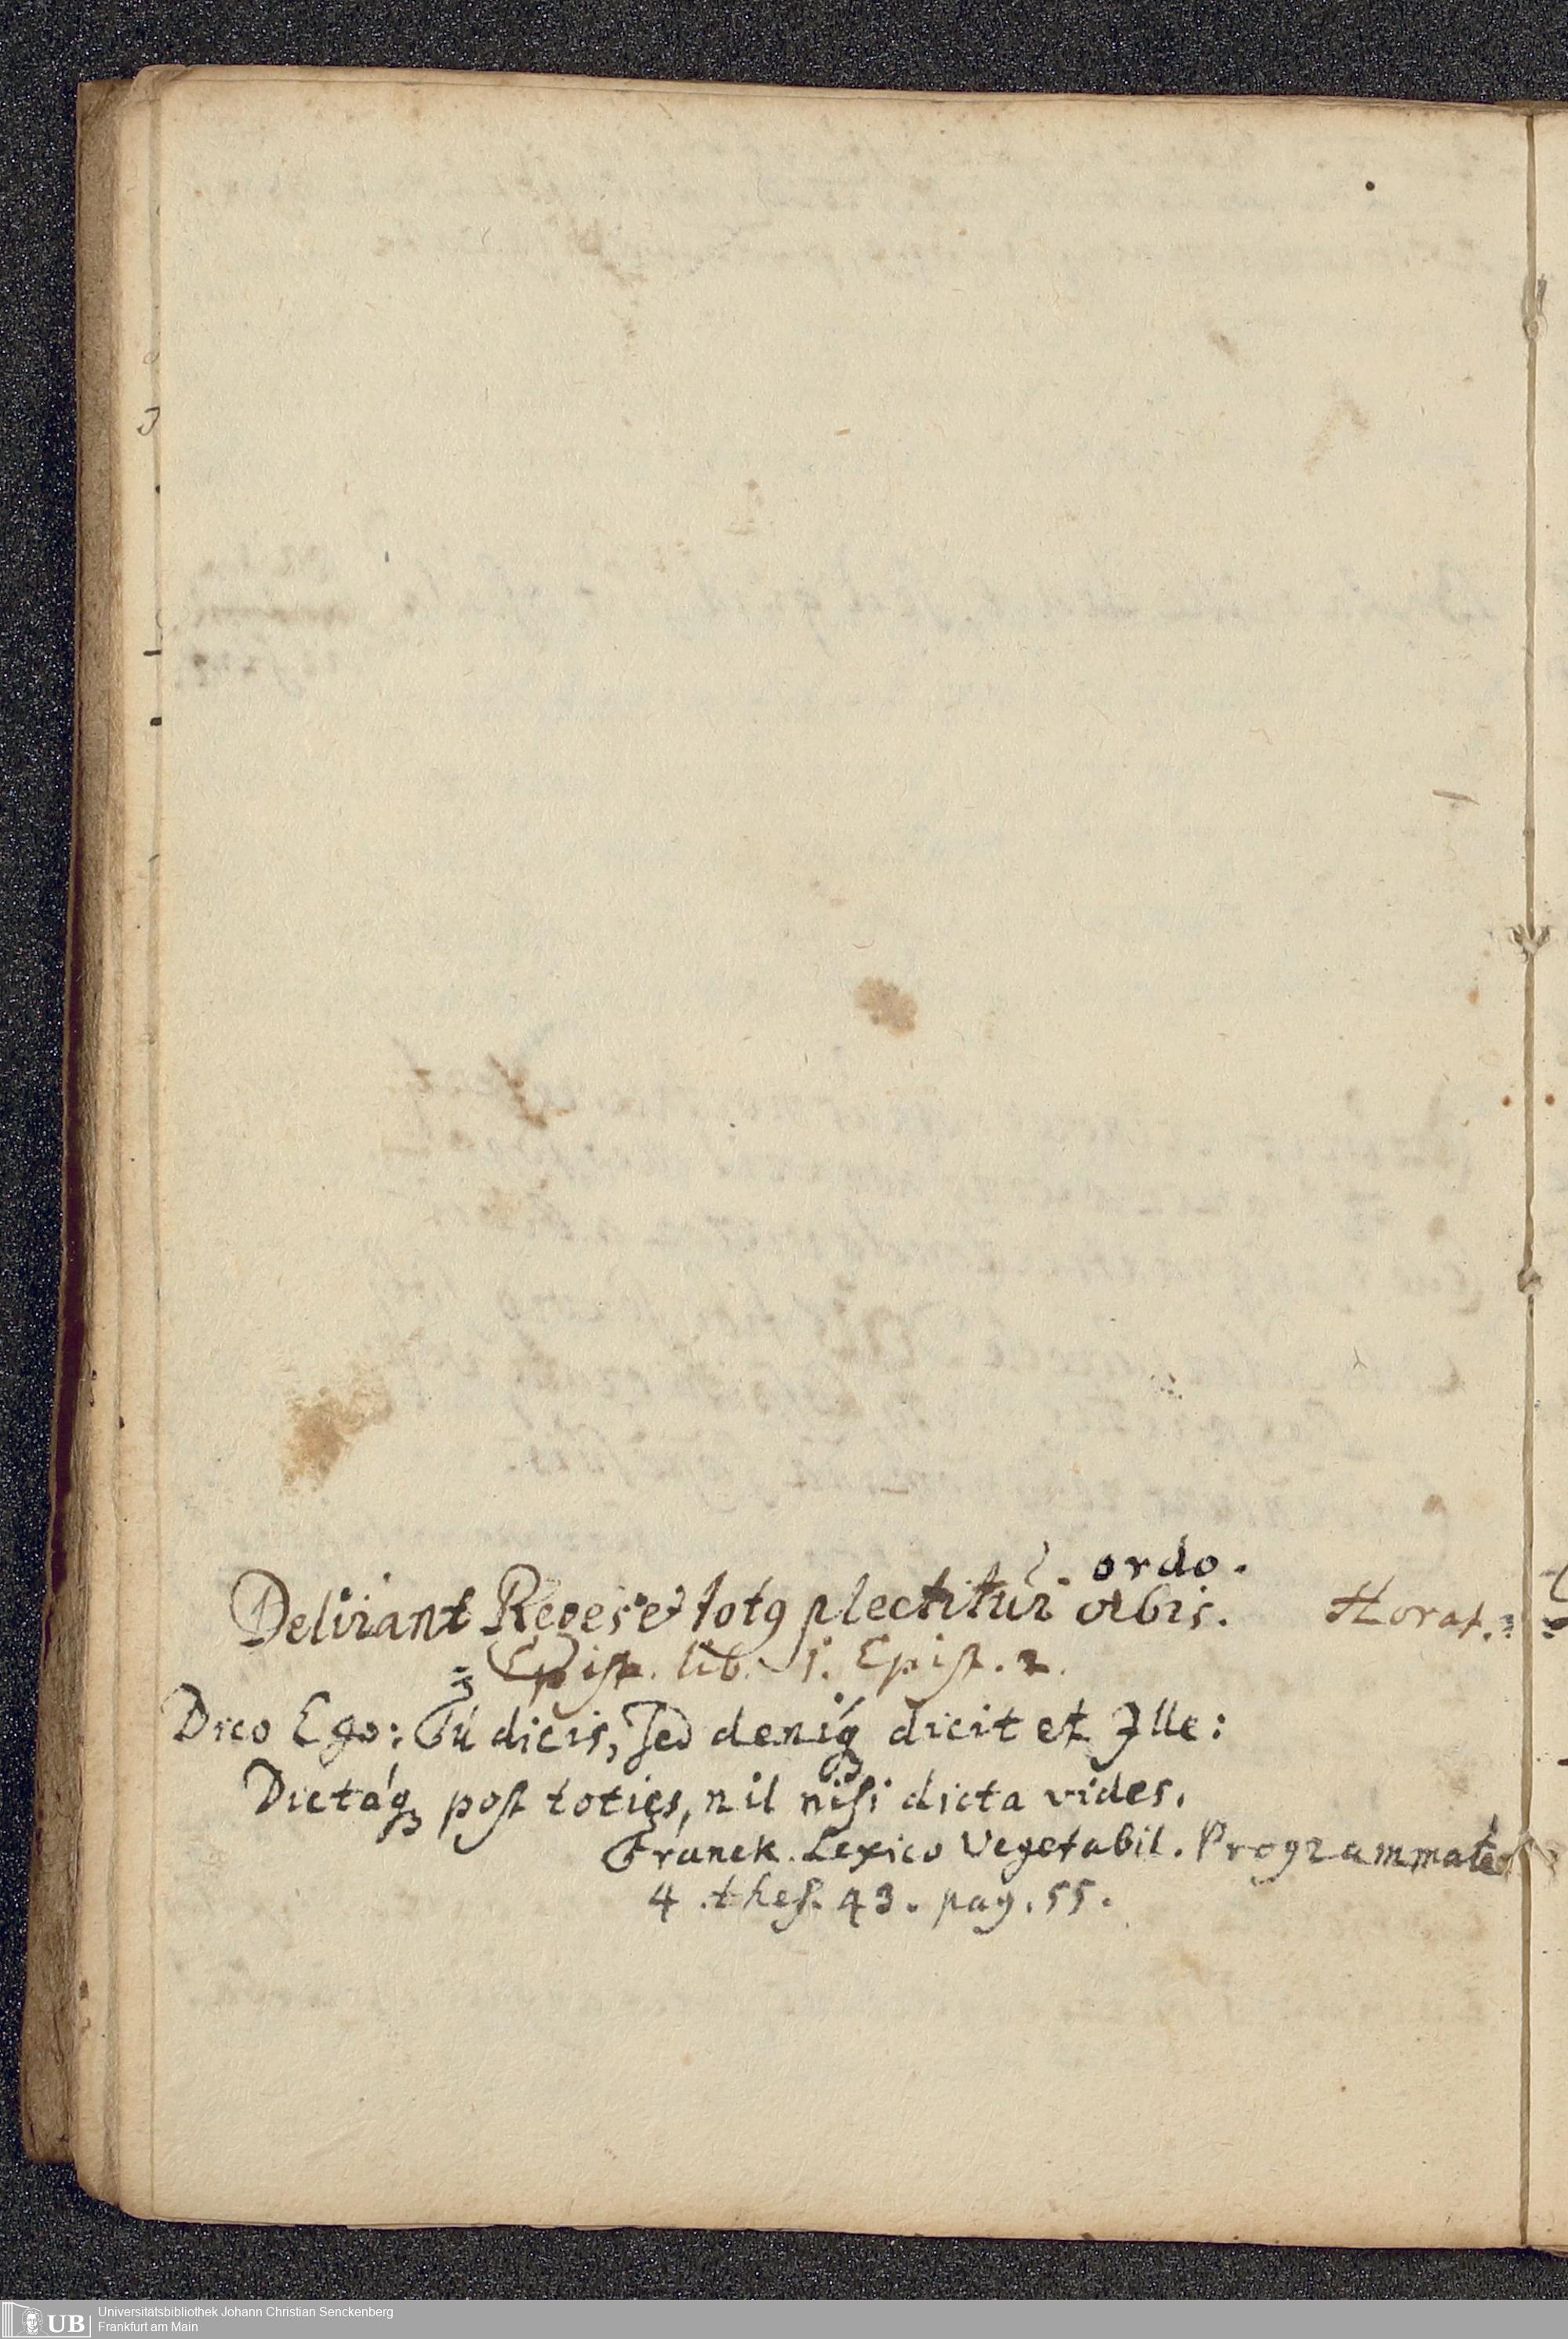 ordo.
Delirant Reges et totꝰ plectitur orbis. Horat.
Epist. lib. 1. Epist. 2.
Dico Ego: Tú dicis, sed deniqꝫ dicit et Ille:
Dictáqꝫ post toties, nil nisi dicta vides.
Franck. Lexico Vegetabil. Programmate
4. thes. 43. pag. 55.
UB
Universitätsbibliothek Johann Christian Senckenberg
Frankfurt am Main